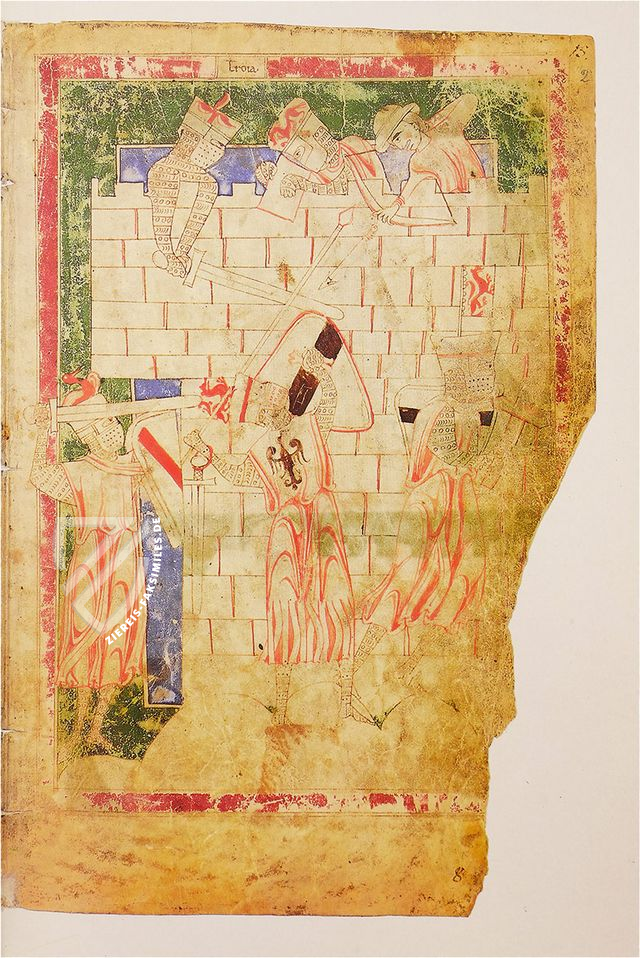 troia
15
2
ZIEREIS-FAKSIMILES.DE
8